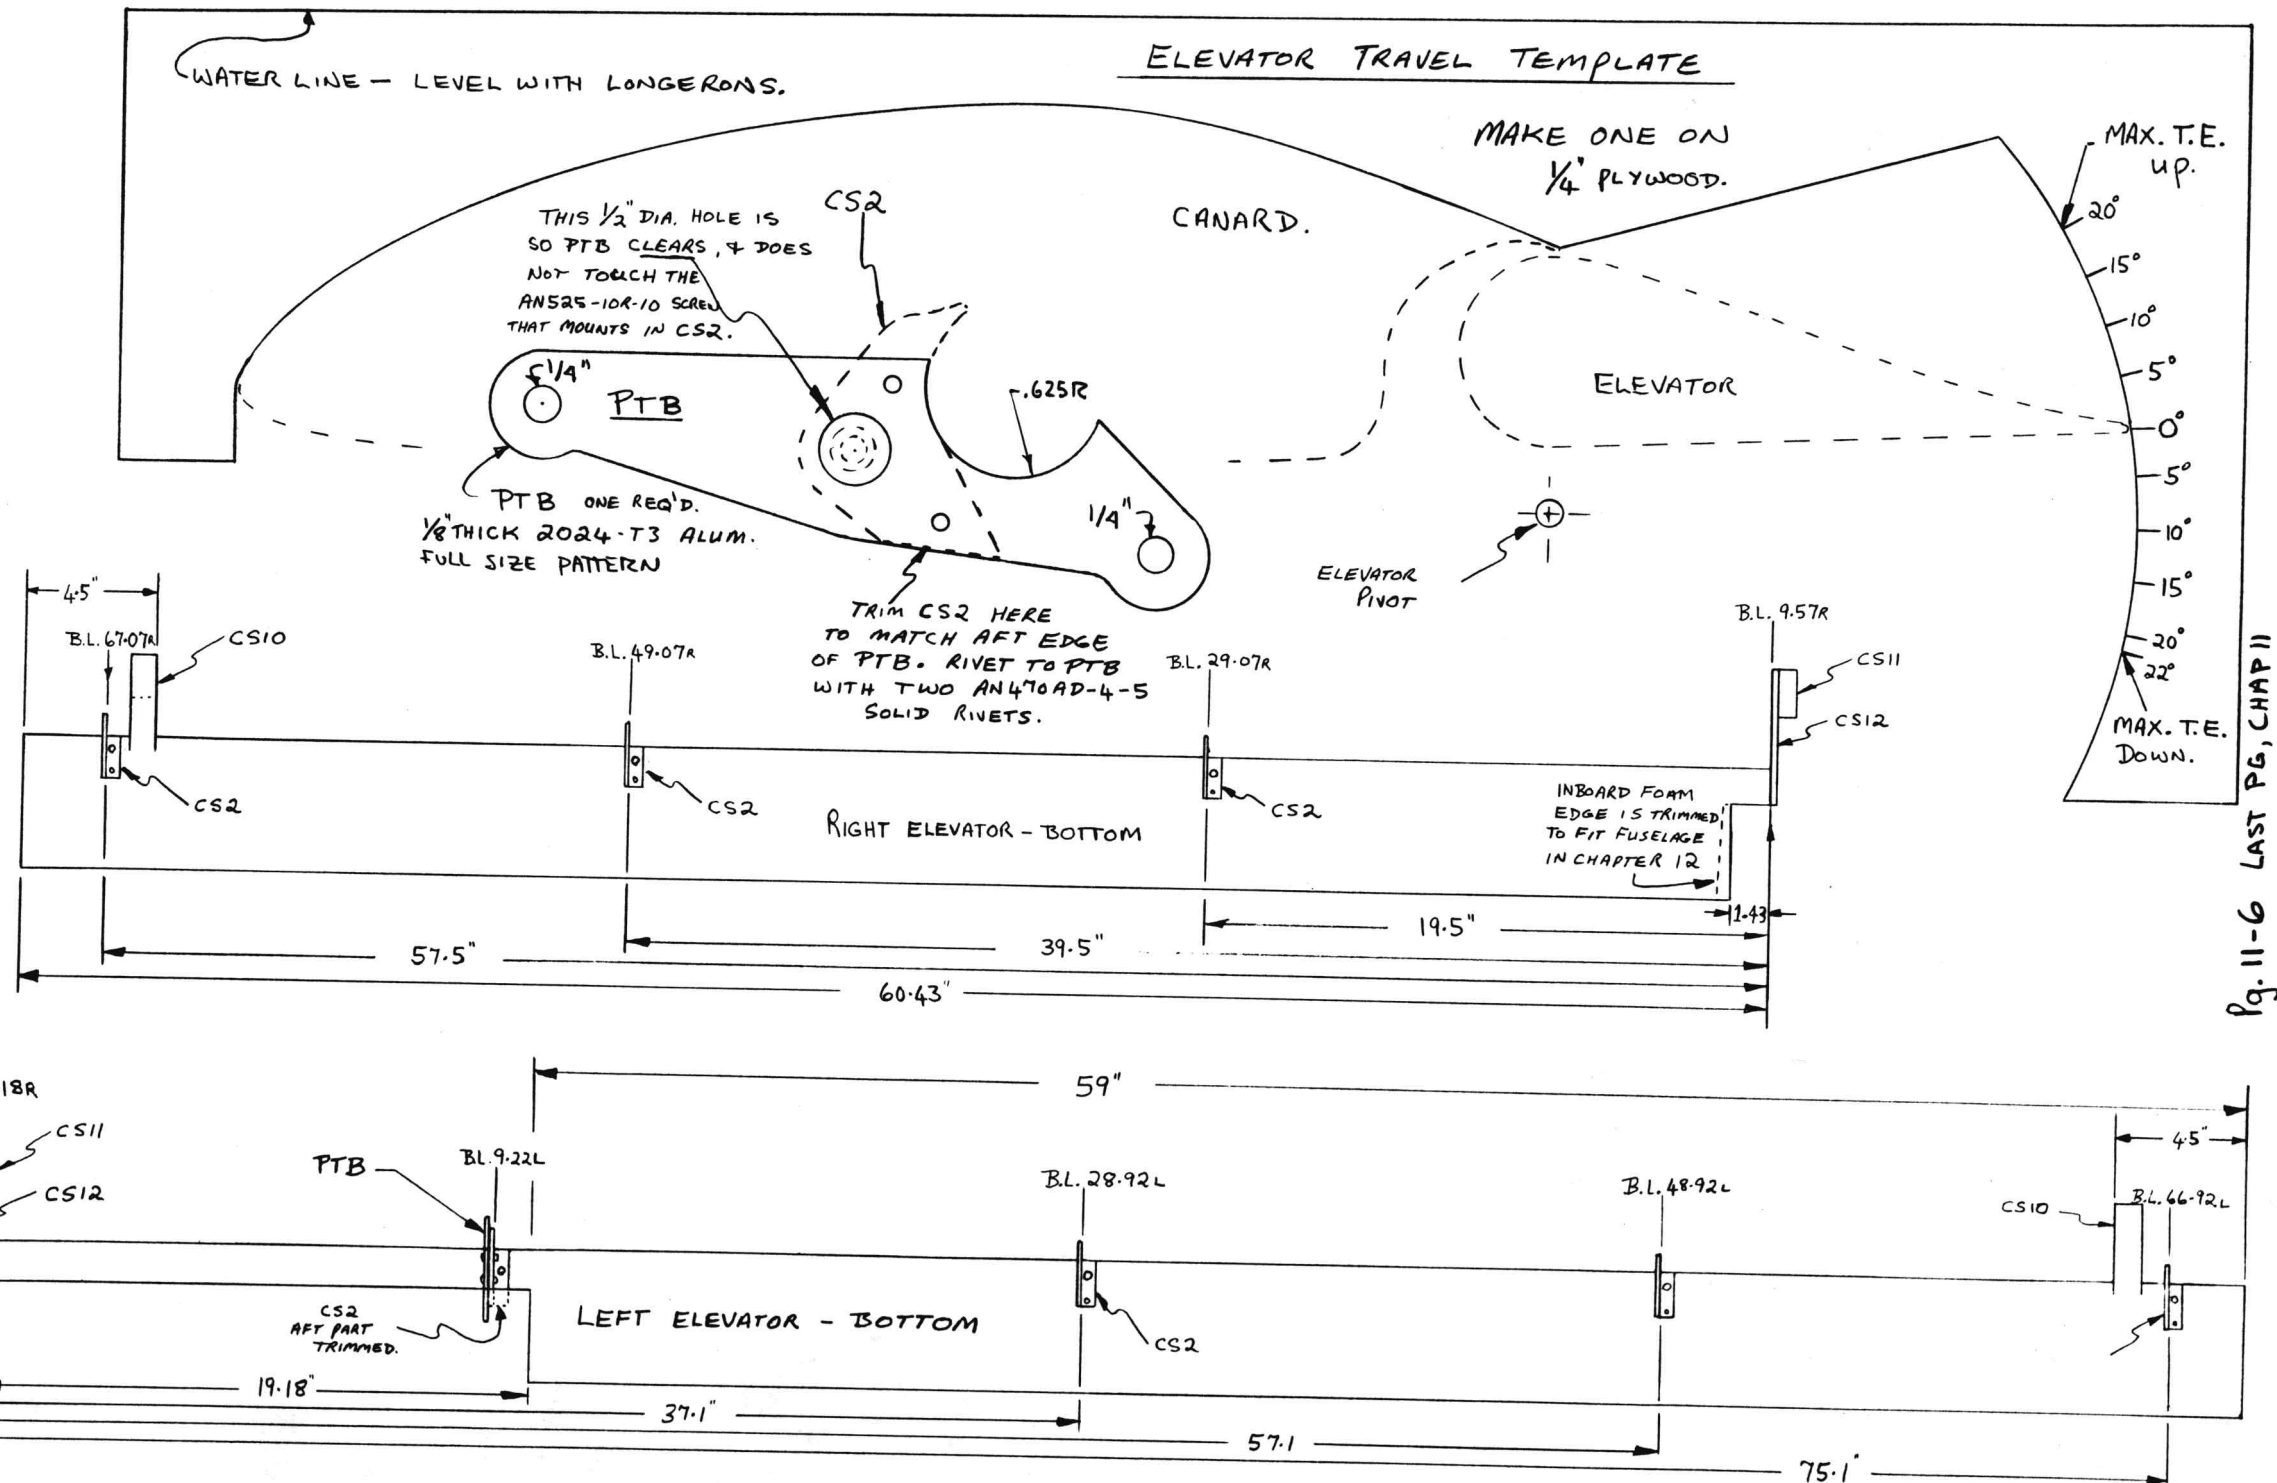 ELEVATOR TRAVEL TEMPLATE
WATER LINE — LEVEL WITH LONGERONS.
MAKE ONE ON
1/4" PLYWOOD.
MAX. T.E.
UP.
20°
15°
10°
5°
0°
5°
10°
15°
20°
22°
MAX. T.E.
DOWN.
THIS 1/2" DIA. HOLE IS
SO PTB CLEARS, & DOES
NOT TOUCH THE
AN525-10R-10 SCREW
THAT MOUNTS IN CS2.
CS2
CANARD.
ELEVATOR
1/4"
PTB
.625R
1/4"
PTB ONE REQ'D.
1/8" THICK 2024-T3 ALUM.
FULL SIZE PATTERN
ELEVATOR
PIVOT
TRIM CS2 HERE
TO MATCH AFT EDGE
OF PTB. RIVET TO PTB
WITH TWO AN470AD-4-5
SOLID RIVETS.
4.5"
B.L. 67.07R
CS10
B.L. 49.07R
B.L. 29.07R
B.L. 9.57R
CS11
CS12
CS2
CS2
CS2
RIGHT ELEVATOR - BOTTOM
INBOARD FOAM
EDGE IS TRIMMED
TO FIT FUSELAGE
IN CHAPTER 12
1.43
19.5"
39.5"
57.5"
60.43"
Pg. 11-6 LAST PG, CHAP 11
59"
18R
CS11
CS12
PTB
B.L. 9.22L
B.L. 28.92L
B.L. 48.92L
4.5"
CS10
B.L. 66.92L
CS2
AFT PART
TRIMMED.
LEFT ELEVATOR - BOTTOM
CS2
19.18"
37.1"
57.1
75.1"